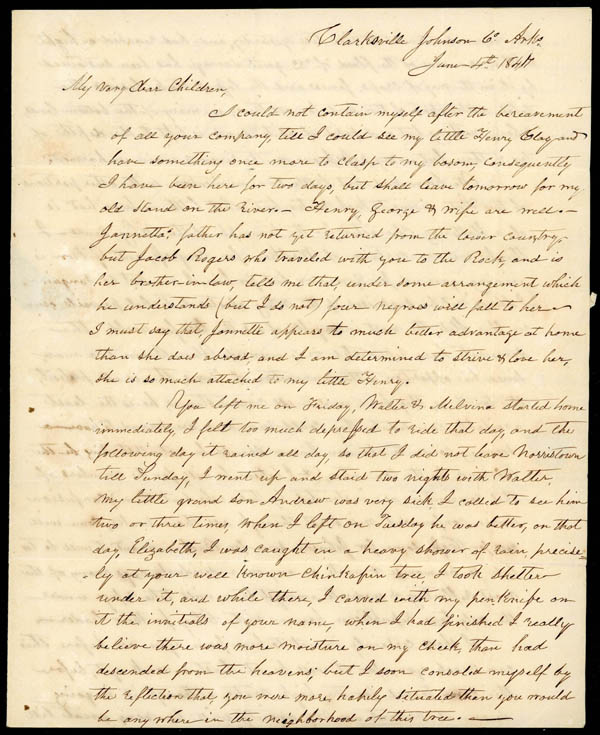 Clarksville Johnson Co Arks.
June 4th 1847
My very dear Children,
I could not contain myself after the bereavement
of all your company, till I could see my little Henry Clay and
have something once more to clasp to my bosom, consequently
I have been here for two days, but shall leave tomorrow for my
old stand on the River.— Henry, George & wife are well.—
Jannetta's father has not yet returned from the lower country,
but Jacob Rogers who traveled with you to the Rock, and is
her brother-in-law, tells me that, under some arrangement which
he understands (but I do not) four negroes will fall to her—
I must say that, Jannette appears to much better advantage at home
than she does abroad, and I am determined to strive & love her,
she is so much attached to my little Henry.
You left me on Friday, Walter & Melvina started home
immediately, I felt too much depressed to ride that day, and the
following day it rained all day, so that I did not leave Norristown
till Sunday, I went up and staid two nights with Walter,
my little grand son Andrew was very sick, I called to see him
two or three times, when I left on Tuesday he was better, on that
day, Elizabeth, I was caught in a heavy shower of rain, precise=
ly at your well known Chinkapin tree, I took shelter
under it, and while there, I carved with my pen knife on
it the innitials of your name, when I had finished I really
believe there was more moisture on my cheek, than had
descended from the heavens; but I soon consoled myself by
the reflection that you were more hapily situated than you would
be any where in the neighborhood of this tree.—